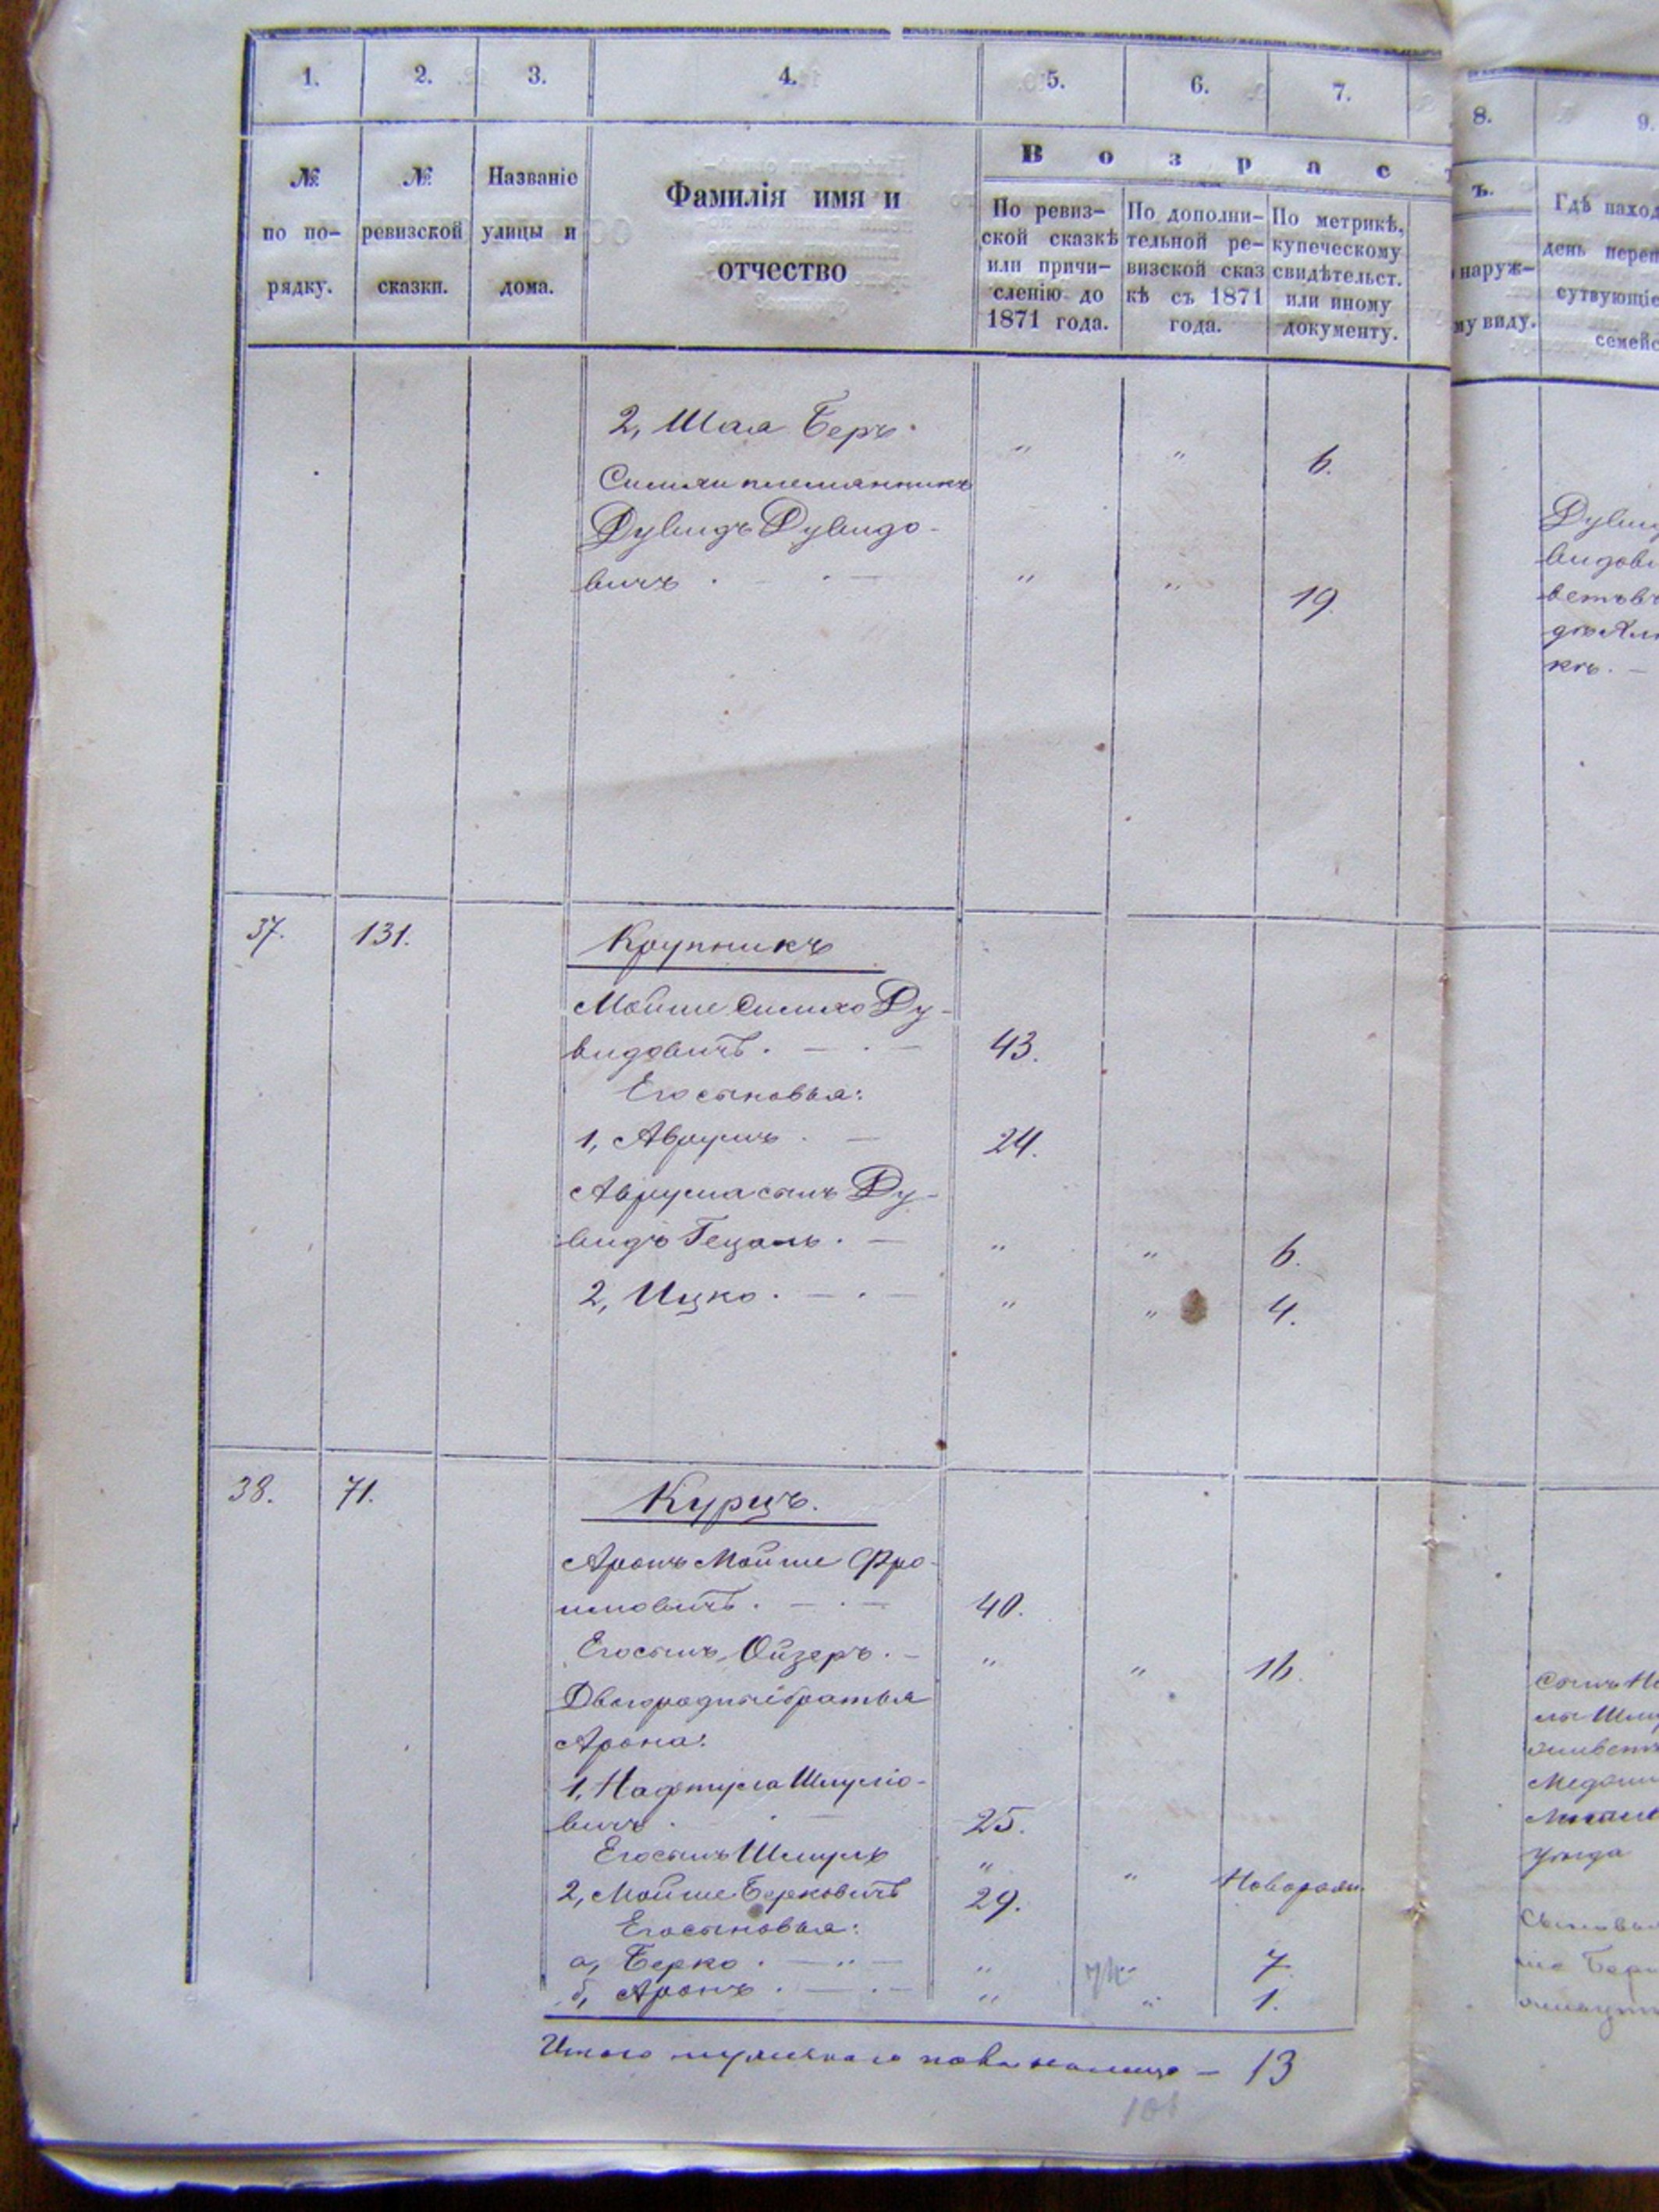 1. 2. 3. 4. 5. 6. 7. 8. 9.
№ по порядку.
№ ревизской сказки.
Названіе улицы и дома.
Фамилія имя и отчество
Возраст
ъ.
По ревиз-
ской сказкѣ
или причи-
сленію до
1871 года.
По дополни-
тельной ре-
визской сказ
кѣ съ 1871
года.
По метрикѣ,
купеческому
свидѣтельст.
или иному
документу.
наруж-
му виду.
Гдѣ наход
день переп
сутвующіе
семейс
2, Шая Беръ. " " 6.
Симхи племянникъ
Дувидъ Дувидо-
вичъ . - . - " " 19.
Дувид
видови
37. 131. Крупникъ
Мойше Симхо Ду-
видовичъ. - . - 43.
Его сыновья:
1, Аврумъ . - 24.
Аврума сынъ Ду-
видъ Гецель. - " " 6.
2, Ицко. - . - " " 4.
38. 71. Курцъ.
Аронъ Мойше Фро-
имовичъ. - . - 40.
Его сынъ Ойзеръ. - " " 16.
Двоюродные братья
Арона:
1, Нафтула Шмуліо-
вичъ . - 25.
Его сынъ Шмуль " " Новорожд.
2, Мойше Берковичъ 29.
Его сыновья:
а, Берко. - " - " 7.
б, Аронъ. - . - " " 1.
Итого мужескаго пола налицо - 13
сынъ На
лы Шму
уѣзда
Сыновья
ше Берк